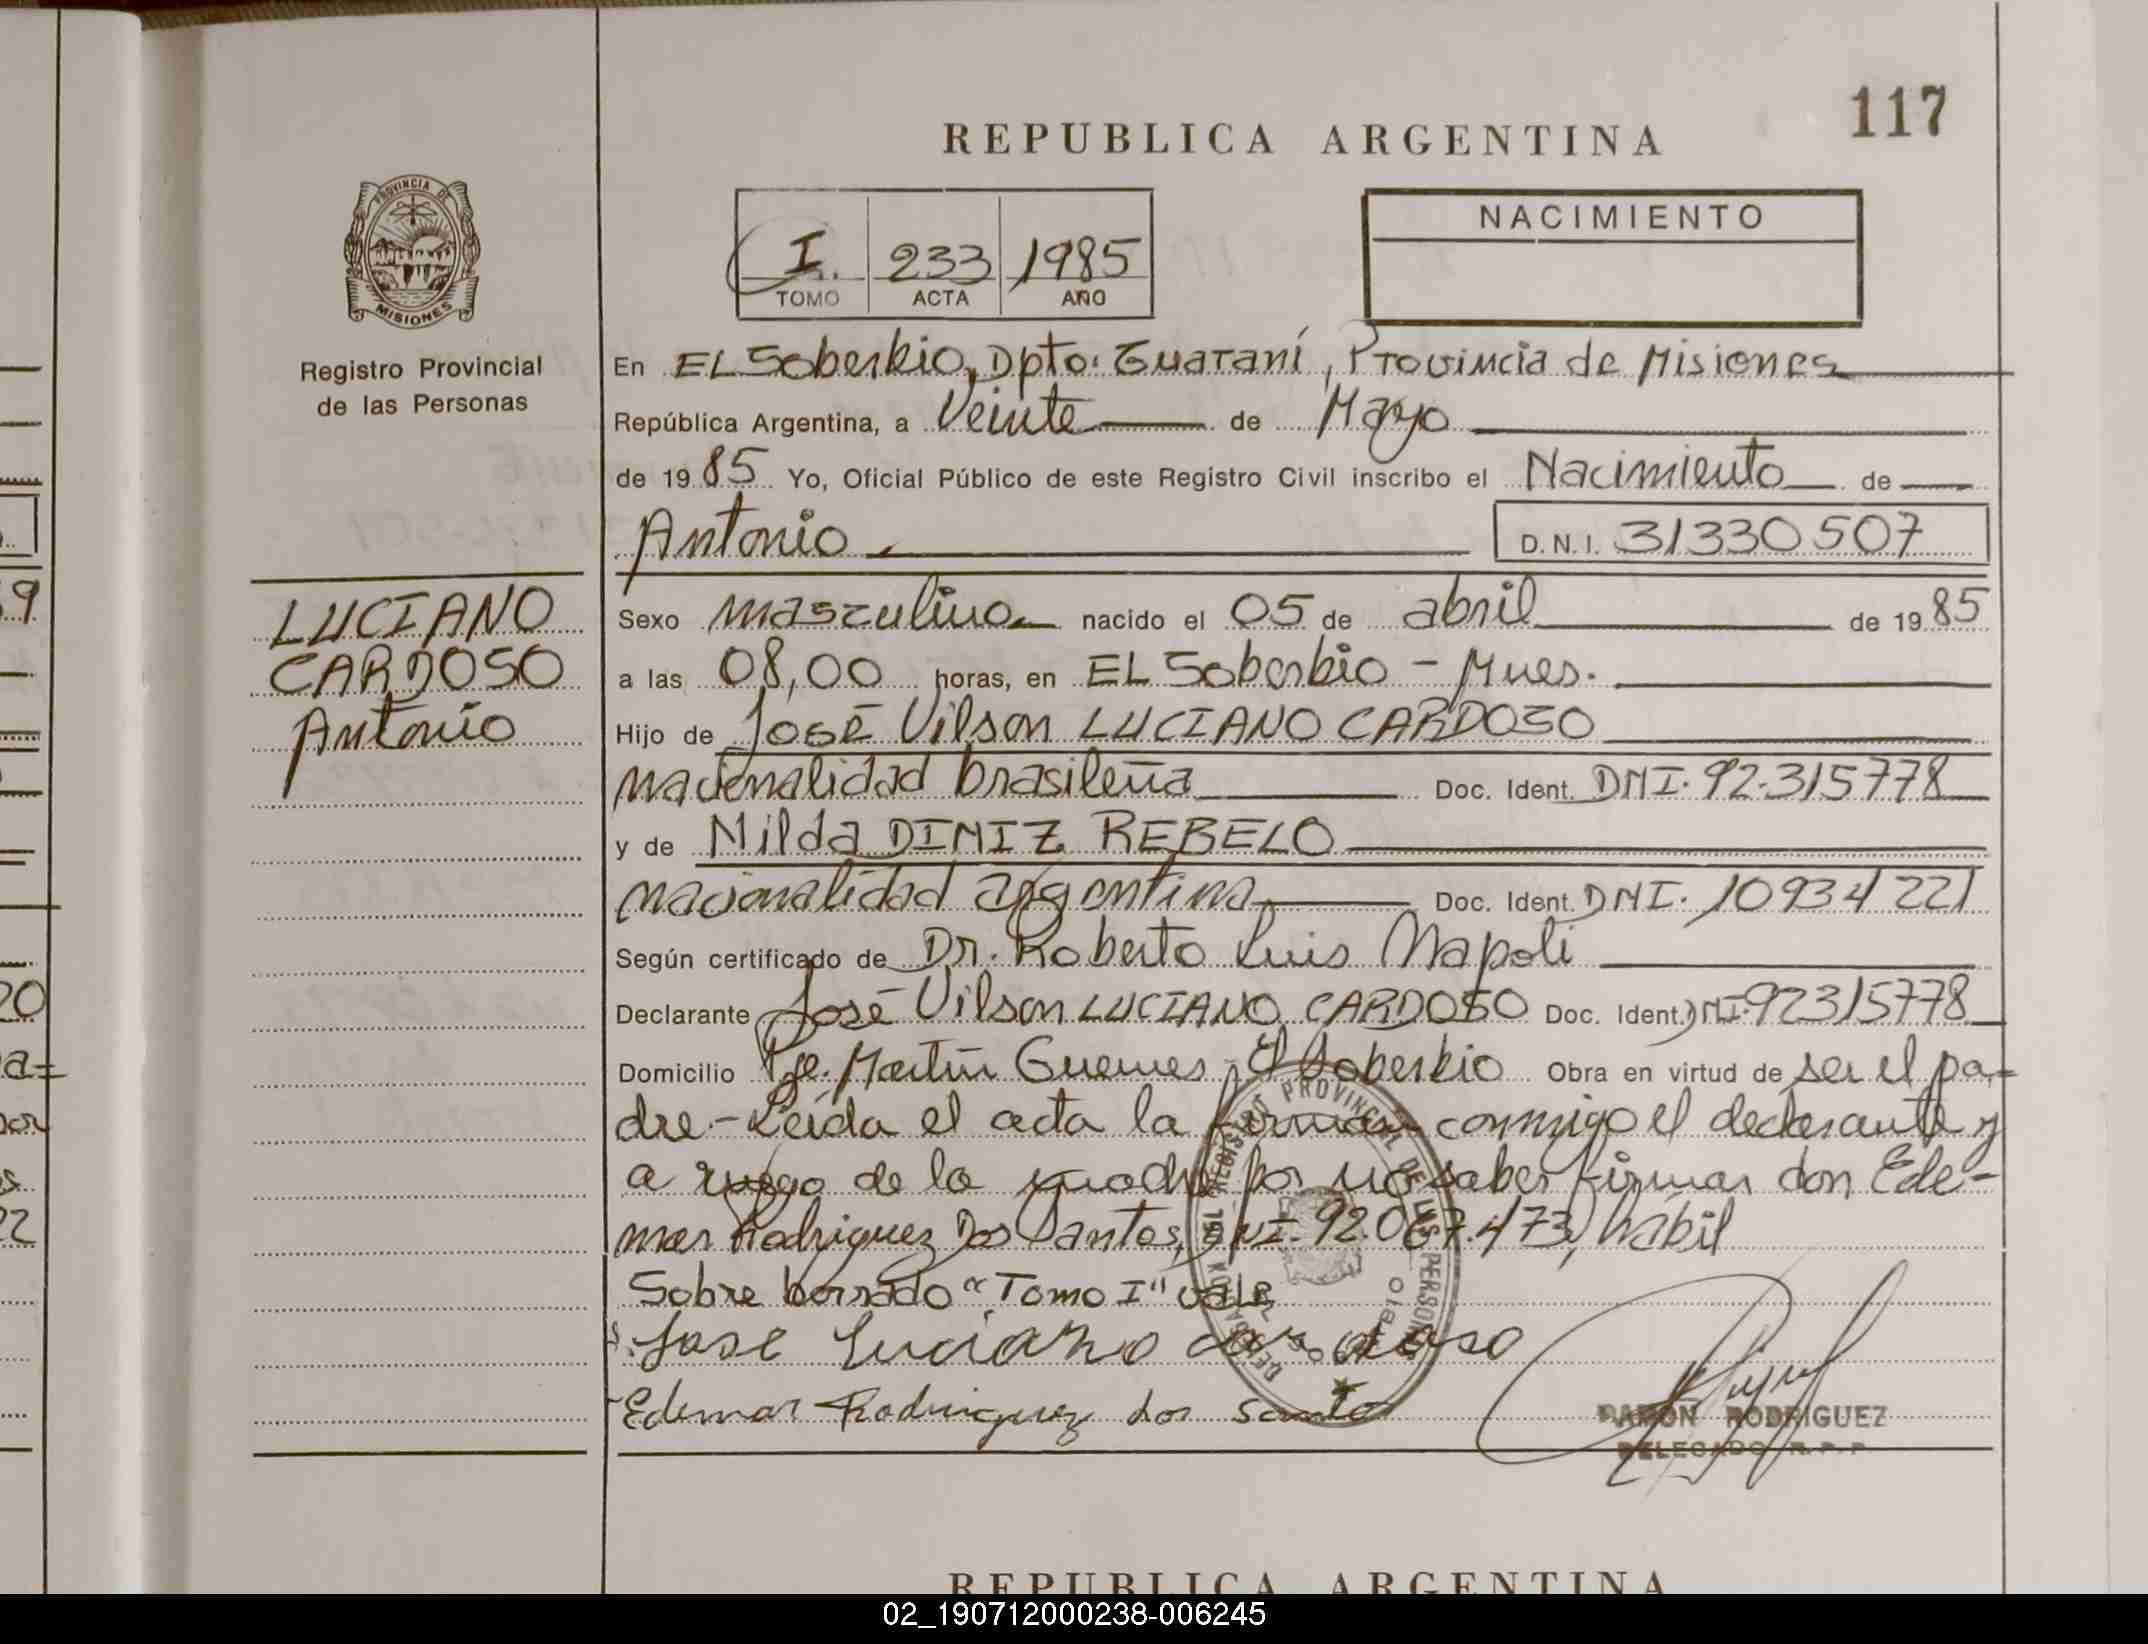 117
REPUBLICA ARGENTINA
PROVINCIA DE
MISIONES
Registro Provincial
de las Personas
I. 233 1985
TOMO ACTA AÑO
NACIMIENTO
En EL Soberbio, Dpto: Guaraní, Provincia de Misiones
República Argentina, a Veinte de Mayo
de 1985 Yo, Oficial Público de este Registro Civil inscribo el Nacimiento de
Antonio D.N.I. 31330507
LUCIANO
CARDOSO
Antonio
Sexo masculino nacido el 05 de abril de 1985
a las 08,00 horas, en EL Soberbio - Mnes.
Hijo de José Vilson LUCIANO CARDOSO
nacionalidad brasileña Doc. Ident. DNI. 92.315778
y de Nilda DINIZ REBELO
nacionalidad argentina Doc. Ident. DNI. 10934221
Según certificado de Dr. Roberto Luis Napoli
Declarante José Vilson LUCIANO CARDOSO Doc. Ident. DNI-92315778
Domicilio Pje. Martín Guemes - El Soberbio Obra en virtud de ser el pa-
dre - Leída el acta la firman conmigo el declarante y
a ruego de la madre por no saber firmar don Ede-
mar Rodriguez Dos Santos, DNI. 92.067.473, hábil
Sobre borrado "Tomo I" vale
Jose Luciano cardoso
Edemar Rodriguez dos Santos
REGISTRO PROVINCIAL DE LAS PERSONAS
RAMON RODRIGUEZ
DELEGADO R.P.P.
REPUBLICA ARGENTINA
02_190712000238-006245